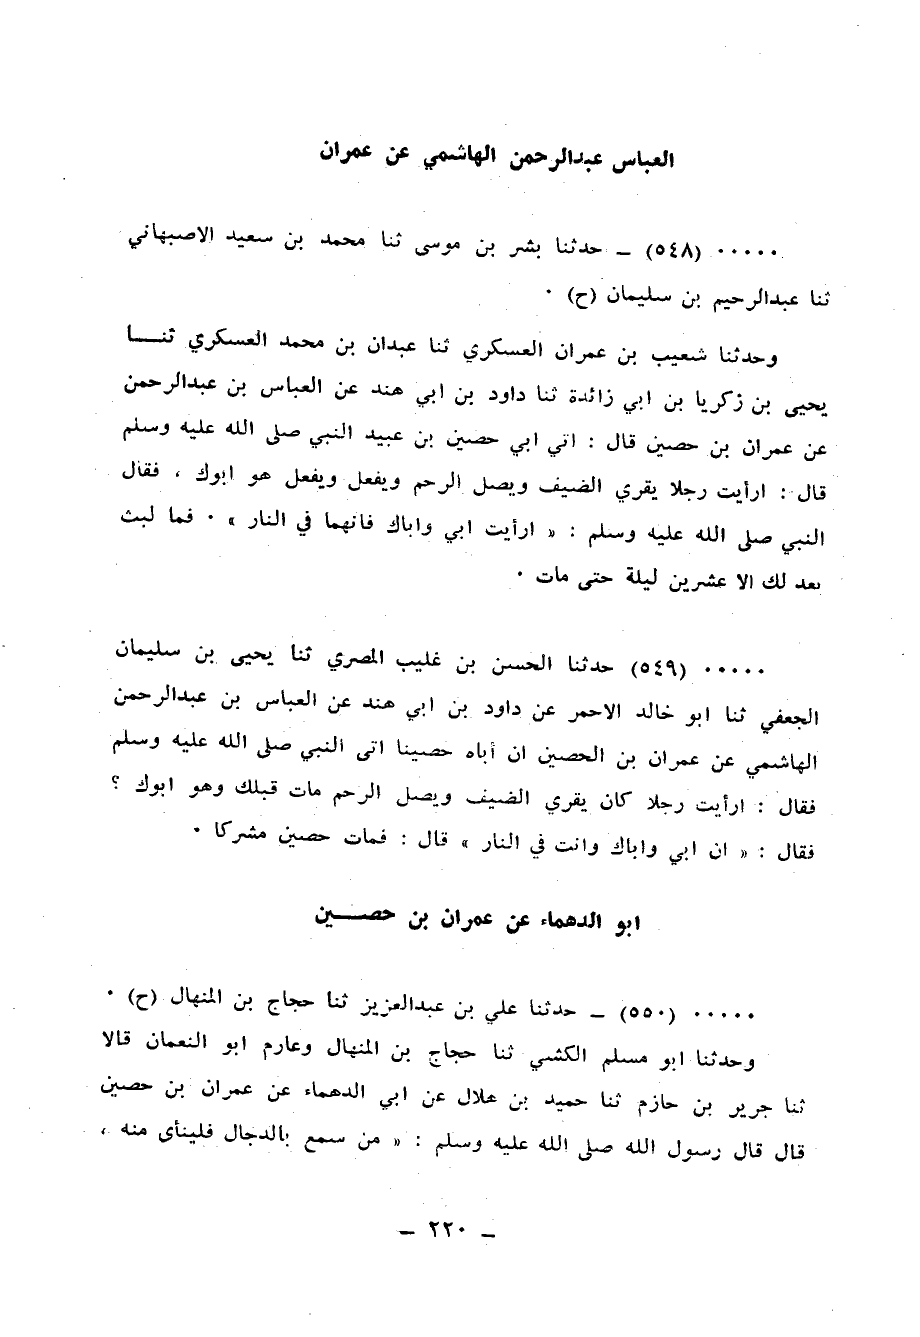 العباس عبدالرحمن الهاشمي عن عمران
٠٠٠٠٠ (٥٤٨) ــ حدثنا بشر بن موسى ثنا محمد بن سعيد الاصبهاني
ثنا عبدالرحيم بن سليمان (ح) ٠
وحدثنا شعيب بن عمران العسكري ثنا عبدان بن محمد العسكري ثنـــا
يحيى بن زكريا بن ابي زائدة ثنا داود بن ابي هند عن العباس بن عبدالرحمن
عن عمران بن حصين قال : اتي ابي حصين بن عبيد النبي صلى الله عليه وسلم
قال : ارأيت رجلا يقري الضيف ويصل الرحم ويفعل ويفعل هو ابوك ، فقال
النبي صلى الله عليه وسلم : « ارأيت ابي واباك فانهما في النار » ٠ فما لبث
بعد لك الا عشرين ليلة حتى مات ٠
٠٠٠٠٠ (٥٤٩) حدثنا الحسن بن غليب المصري ثنا يحيى بن سليمان
الجعفي ثنا ابو خالد الاحمر عن داود بن ابي هند عن العباس بن عبدالرحمن
الهاشمي عن عمران بن الحصين ان أباه حصينا اتى النبي صلى الله عليه وسلم
فقال : ارأيت رجلا كان يقري الضيف ويصل الرحم مات قبلك وهو ابوك ؟
فقال : « ان ابي واباك وانت في النار » قال : فمات حصين مشركا ٠
ابو الدهماء عن عمران بن حصـــين
٠٠٠٠٠ (٥٥٠) ــ حدثنا علي بن عبدالعزيز ثنا حجاج بن المنهال (ح) ٠
وحدثنا ابو مسلم الكشي ثنا حجاج بن المنهال وعارم ابو النعمان قالا
ثنا جرير بن حازم ثنا حميد بن هلال عن ابي الدهماء عن عمران بن حصين
قال قال رسول الله صلى الله عليه وسلم : « من سمع بالدجال فلينأى منه ،
ــ ٢٢٠ ــ